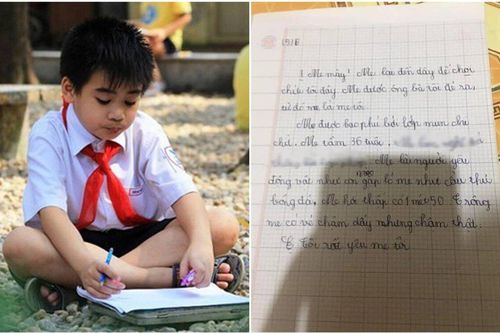 Mẹ mày! Mẹ lại đến đây để chơi
Mẹ được ông bà tôi đẻ ra,
từ đó mẹ là mẹ tôi.
Mẹ được bao phủ bởi lớp mun che
chở. Mẹ tầm 36 tuổi,
Mẹ là người yêu
động vật như con mèo gặp mẹ như cầu thủ
bóng đá, Mẹ hơi thấp có 1 mét 50. Trông
mẹ có vẻ chậm đấy nhưng chậm thật.
Tôi rất yêu mẹ tôi